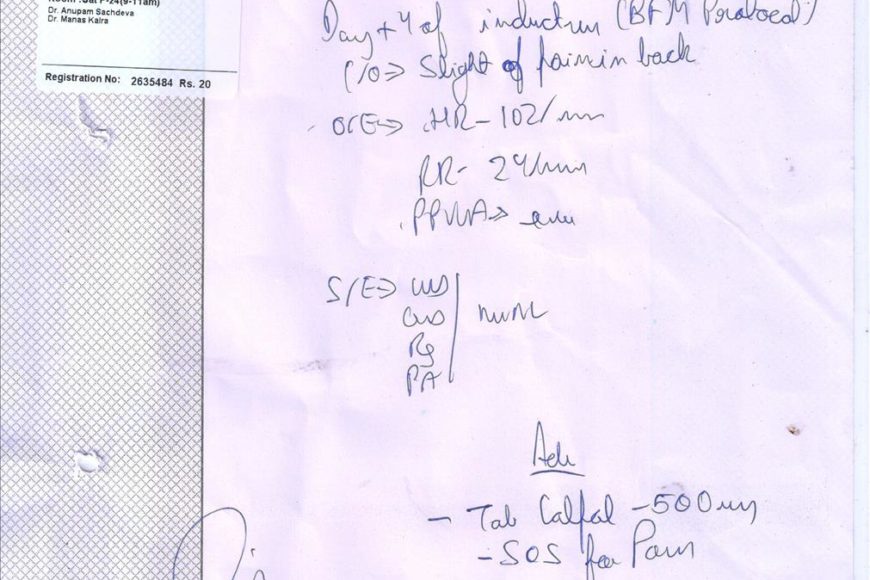 Room :Sat F-24(9-11am)
Dr. Anupam Sachdeva
Dr. Manas Kalra
Registration No: 2635484 Rs. 20
Day + 4 of induction (BFM Protocol)
C/O => Slight of pain in back
O/E => HR - 102/min
RR - 24/min
S/E => CVS
CNS
RS
PA
Adv
- Tab Calpol - 500 mg
- SOS for Pain